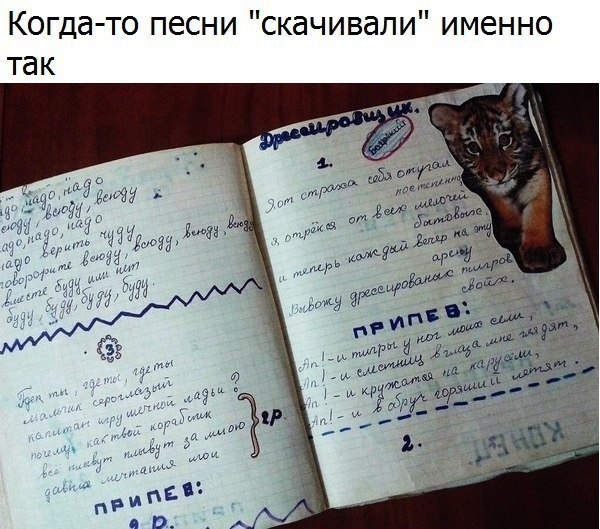 Когда-то песни "скачивали" именно
так
надо, надо
всюду, всюду
надо, надо, надо
надо верить чуду
всюду, всюду, всюду
вместе буду или нет
буду, буду, буду, буду.
3
Где ты, где ты, где ты
мальчик сероглазый
капитан игрушечной ладьи?
почему, как твой кораблик
всё плывут плывут за мною
давние мечтания мои
2р.
ПРИПЕВ:
2 р.
Дрессировщик.
1.
Я от страха себя отучал
постепенно
я отрёкся от всех мелочей
бытовых.
и теперь каждый вечер на эту
арену
Вывожу дрессированых тигров
своих.
ПРИПЕВ:
Ап! - и тигры у ног моих сели,
Ап! - и с лестниц в глаза мне глядят,
Ап! - и кружатся на карусели,
Ап! - и в обруч горящий летят.
2.
КОНЕЦ